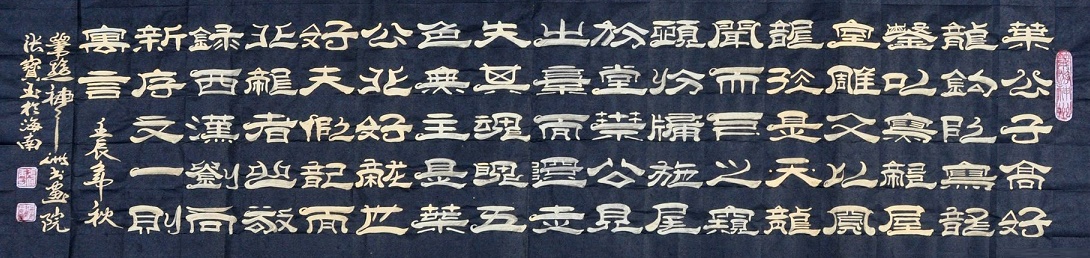 葉公子高好
龍鈎以寫龍
鑿以寫龍屋
室雕文以鳳
龍於是天龍
聞而下之窺
頭於牖施尾
於堂葉公見
之棄而還走
失其魂魄五
色無主是葉
公非好龍也
好夫似龍而
非龍者也敬
録西漢劉向
新序文一則
寓言
壬辰年秋
書畫院
張寶玉於海南